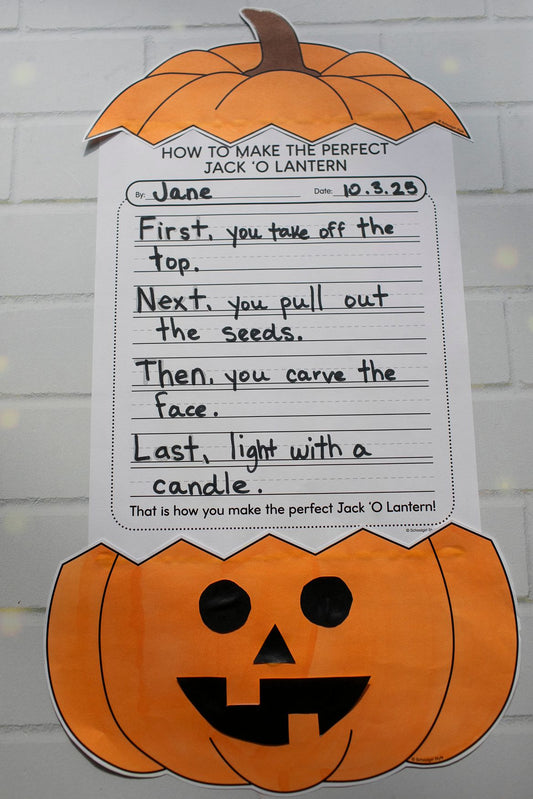 HOW TO MAKE THE PERFECT
JACK 'O LANTERN
By: Jane Date: 10.3.25
First, you take off the
top.
Next, you pull out
the seeds.
Then, you carve the
face.
Last, light with a
candle.
That is how you make the perfect Jack 'O Lantern!
© Schoolgirl Style